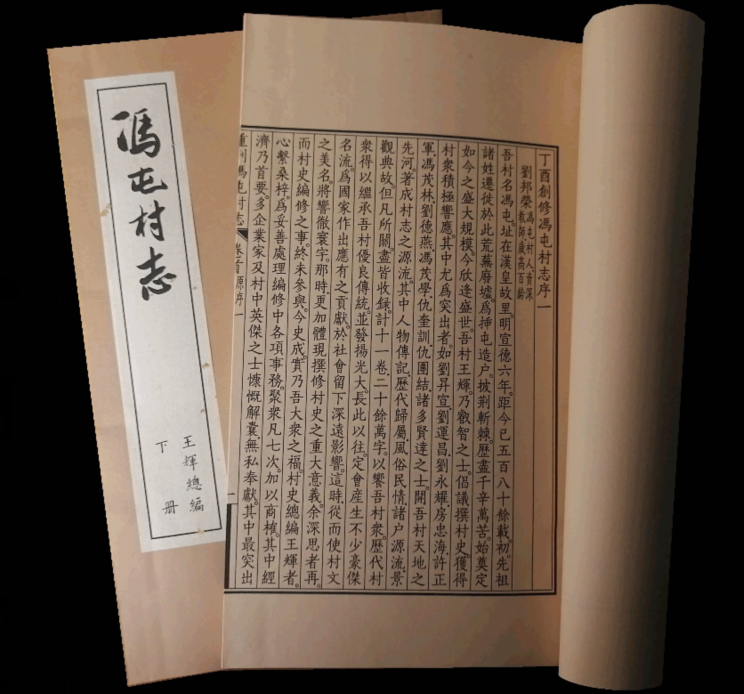 馮屯村志
王輝總編
下册
丁酉創修馮屯村志序一
劉邦榮 馮屯村人資深
教師歲高百齡
吾村名馮屯。址在漢皇故里。明宣德六年。距今已五百八十餘載。初。先祖
諸姓遷徙於此。荒蕪廢墟。爲挿屯造户。披荆斬棘。歷盡千辛萬苦。始奠定
如今之盛大規模。今欣逢盛世。吾村王輝。乃叡智之士。倡議撰村史。獲得
村衆積極響應。其中尤爲突出者。如劉昇宣。劉運昌。劉永耀。房忠海。許正
軍。馮茂林。劉德燕。馮茂學。仇奎訓。仇團結。諸多賢達之士。開吾村天地之
先河。著成村志之源流。其中人物傳記。歷代歸屬。風俗民情。諸户源流。景
觀典故。但凡所關。盡皆收録。計十一卷二十餘萬字。以饗吾村衆。歷代村
衆得以繼承吾村優良傳統。並發揚光大。長此以往。定會産生不少豪傑
名流。爲國家作出應有之貢獻。於社會留下深遠影響。這時。從而使村文
之美名。將響徹寰宇。那時。更加體現撰修村史之重大意義。余深思者再。
而村史編修之事。終未參與。今史成。實乃吾大衆之福。村史總編王輝者。
心繫桑梓。爲妥善處理編修中各項事務。聚衆凡七次。加以商榷。其中經
濟乃首要。多企業家及村中英傑之士。慷慨解囊。無私奉獻。其中最突出
重刊馮屯村志 卷首 源序 一